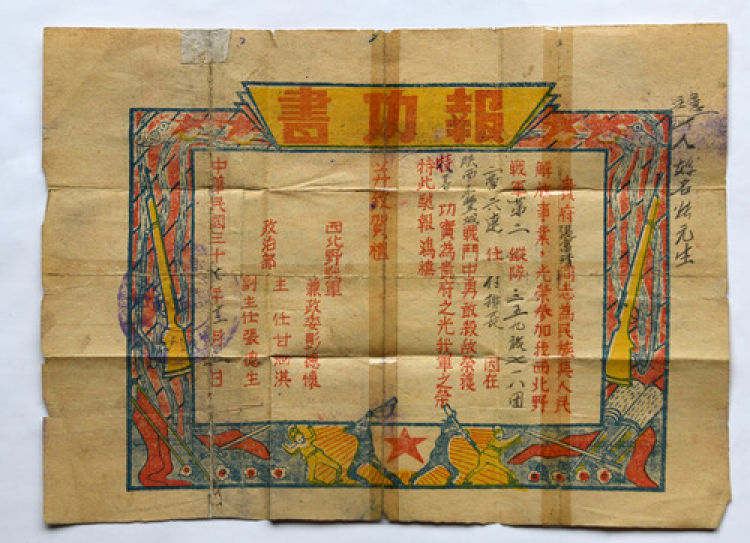 報功書
貴府張富清同志為民族與人民
解放事業,光榮參加我西北野
戰軍第二縱隊三五九旅七一八團
二营六連任付排長因在
陝西永豐城戰鬥中勇敢殺敵榮獲
特等功實為貴府之光我軍之榮
特此馳報鴻禧
並致賀禮
西北野戰軍
兼政委彭德懷
政治部
主任甘泗淇
副主任張德生
中華民國三十七年十二月日